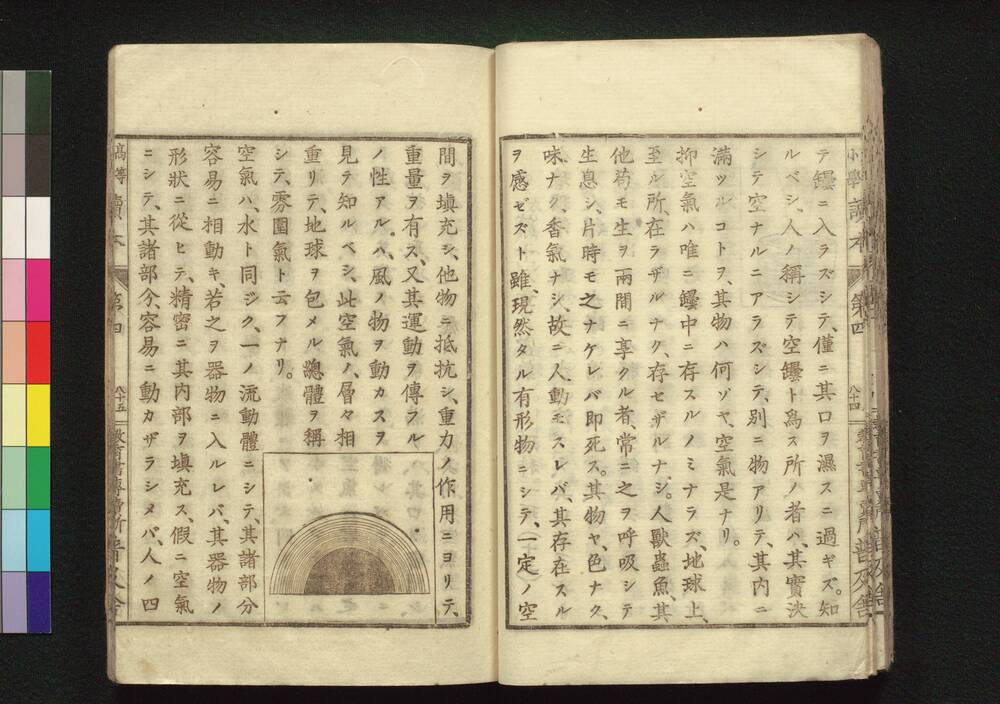 小學讀本
第四
八十四
テ罎ニ入ラズシテ、僅ニ其口ヲ濕スニ過ギズ。知
ルベシ、人ノ稱シテ空罎ト爲ス所ノ者ハ、其實決
シテ空ナルニアラズシテ、別ニ物アリテ、其内ニ
滿ツルコトヲ、其物ハ何ゾヤ、空氣是ナリ。
抑空氣ハ唯ニ罎中ニ存スルノミナラズ、地球上、
至ル所、在ラザルナク、存セザルナシ。人獸蟲魚、其
他苟モ生ヲ兩間ニ享クル者、常ニ之ヲ呼吸シテ
生息シ、片時モ之ナケレバ即死ス。其物ヤ、色ナク、
味ナク、香氣ナシ、故ニ人動モスレバ、其存在スル
ヲ感ゼズト雖、現然タル有形物ニシテ、一定ノ空
間ヲ塡充シ、他物ニ抵抗シ、重力ノ作用ニヨリテ、
重量ヲ有ス、又其運動ヲ傳フル
ノ性アルハ、風ノ物ヲ動カスヲ
見テ知ルベシ、此空氣ノ層々相
重リテ、地球ヲ包メル總體ヲ稱
シテ、雰圍氣ト云フナリ。
空氣ハ、水ト同ジク、一ノ流動體ニシテ、其諸部分
容易ニ相動キ、若之ヲ器物ニ入ルレバ、其器物ノ
形狀ニ從ヒテ、精密ニ其内部ヲ塡充ス、假ニ空氣
ニシテ、其諸部分、容易ニ動カザラシメバ、人ノ四
高等讀本
第四
八十五